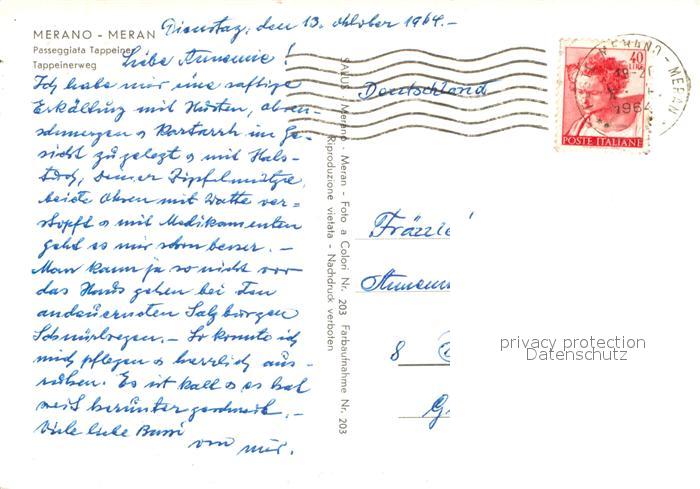 MERANO - MERAN
Passeggiata Tappeiner
Tappeinerweg
Dienstag, den 13. Oktober 1964.-
Liebe Annemie!
Ich habe mir eine saftige
Erkältung mit Husten, Ohren-
schmerzen & Katarrh im Ge-
sicht zugelegt & mit Hals-
tuch, Deiner Zipfelmütze,
beide Ohren mit Watte ver=
stopft & mit Medikamenten
geht es mir schon besser. -
Man kann ja so nicht vor
das Haus gehen bei den
andauernden Salzburgen
Schnürlregen. - So konnte ich
mich pflegen & herrlich aus-
ruhen. Es ist kalt & es hat
weit herunter geschneit. -
Viele liebe Bussi
von mir.
SALUS - Merano - Meran - Foto a Colori Nr. 203 Farbaufnahme Nr. 203
Riproduzione vietata - Nachdruck verboten
Deutschland
40
LIRE
POSTE ITALIANE
MERANO - MERAN
1964
Annem
8
G
privacy protection
Datenschutz